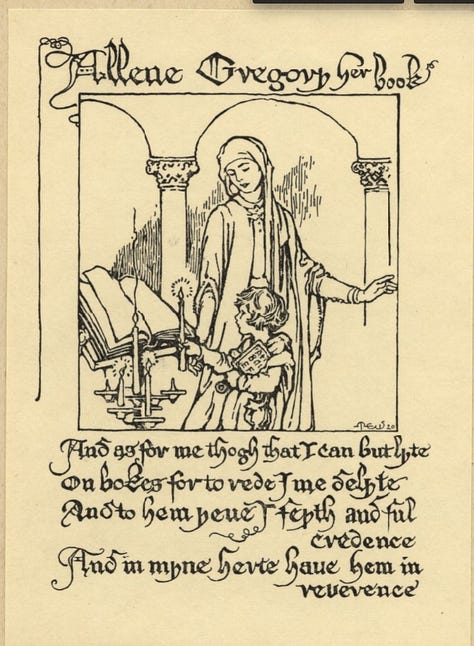 Allene Gregory her book
And as for me thogh that I can but lyte
On bokes for to rede I me delyte
And to hem yeve I feyth and ful
credence
And in myne herte have hem in
reverence